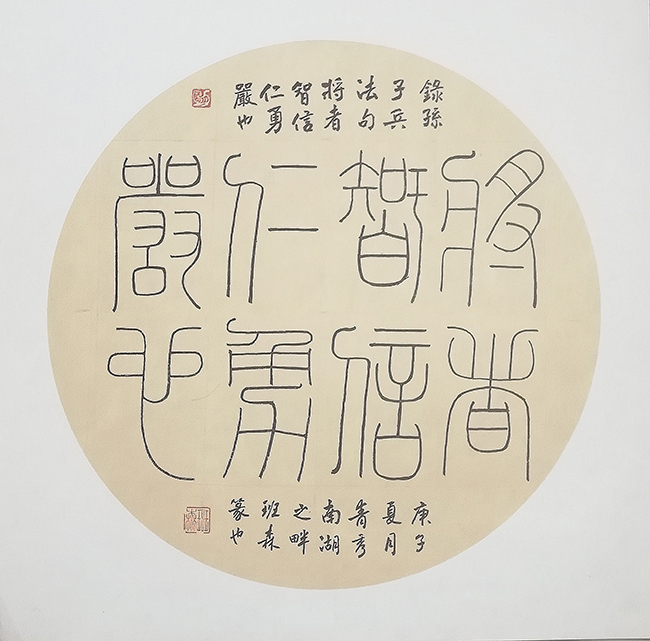 錄孫
子兵
法句
將者
智信
仁勇
嚴也
將者
智信
仁勇
嚴也
庚子
夏月
青秀
南湖
之畔
班森
篆也